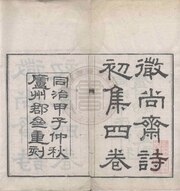 徵尚齋詩
初集四卷
同治甲子仲秋
廬州郡垒重刻